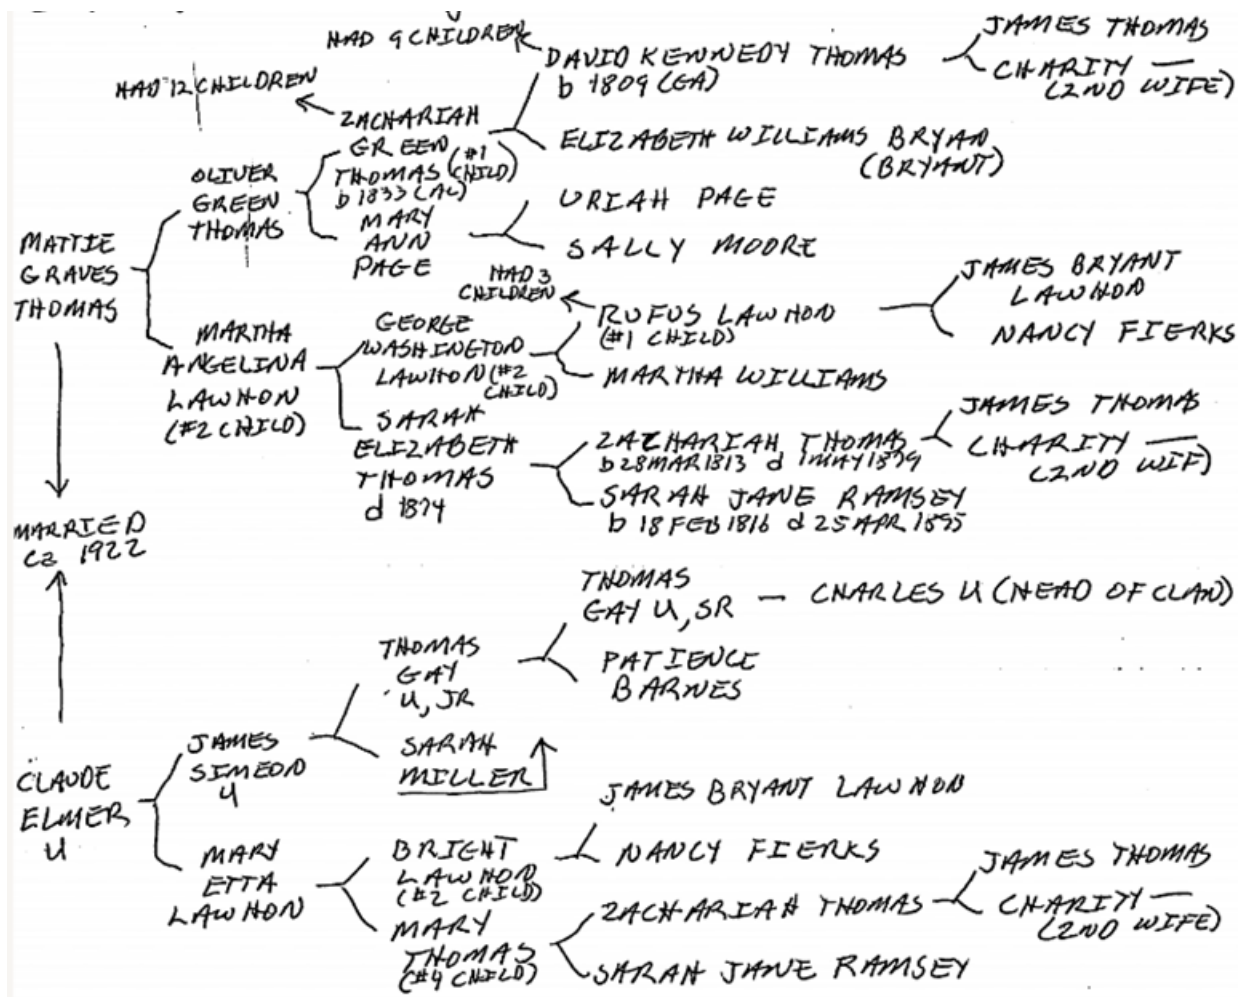 HAD 9 CHILDREN
DAVID KENNEDY THOMAS
b 1809 (GA)
JAMES THOMAS
CHARITY —
(2ND WIFE)
HAD 12 CHILDREN
ZACHARIAH
GREEN
THOMAS (#1 CHILD)
b 1833 (AL)
ELIZABETH WILLIAMS BRYAN
(BRYANT)
OLIVER
GREEN
THOMAS
MARY
ANN
PAGE
URIAH PAGE
SALLY MOORE
MATTIE
GRAVES
THOMAS
HAD 3
CHILDREN
RUFUS LAWHON
(#1 CHILD)
JAMES BRYANT
LAWHON
NANCY FIERKS
MARTHA
ANGELINA
LAWHON
(#2 CHILD)
GEORGE
WASHINGTON
LAWHON (#2 CHILD)
MARTHA WILLIAMS
SARAH
ELIZABETH
THOMAS
d 1874
ZACHARIAH THOMAS
b 28 MAR 1813 d 1 MAY 1879
JAMES THOMAS
CHARITY —
(2ND WIF)
SARAH JANE RAMSEY
b 18 FEB 1816 d 25 APR 1895
MARRIED
ca 1922
THOMAS
GAY U, SR — CHARLES U (HEAD OF CLAN)
THOMAS
GAY
U, JR
PATIENCE
BARNES
JAMES
SIMEON
U
SARAH
MILLER
CLAUDE
ELMER
U
JAMES BRYANT LAWHON
MARY
ETTA
LAWHON
BRIGHT
LAWHON
(#2 CHILD)
NANCY FIERKS
JAMES THOMAS
MARY
THOMAS
(#4 CHILD)
ZACHARIAH THOMAS
CHARITY —
(2ND WIFE)
SARAH JANE RAMSEY